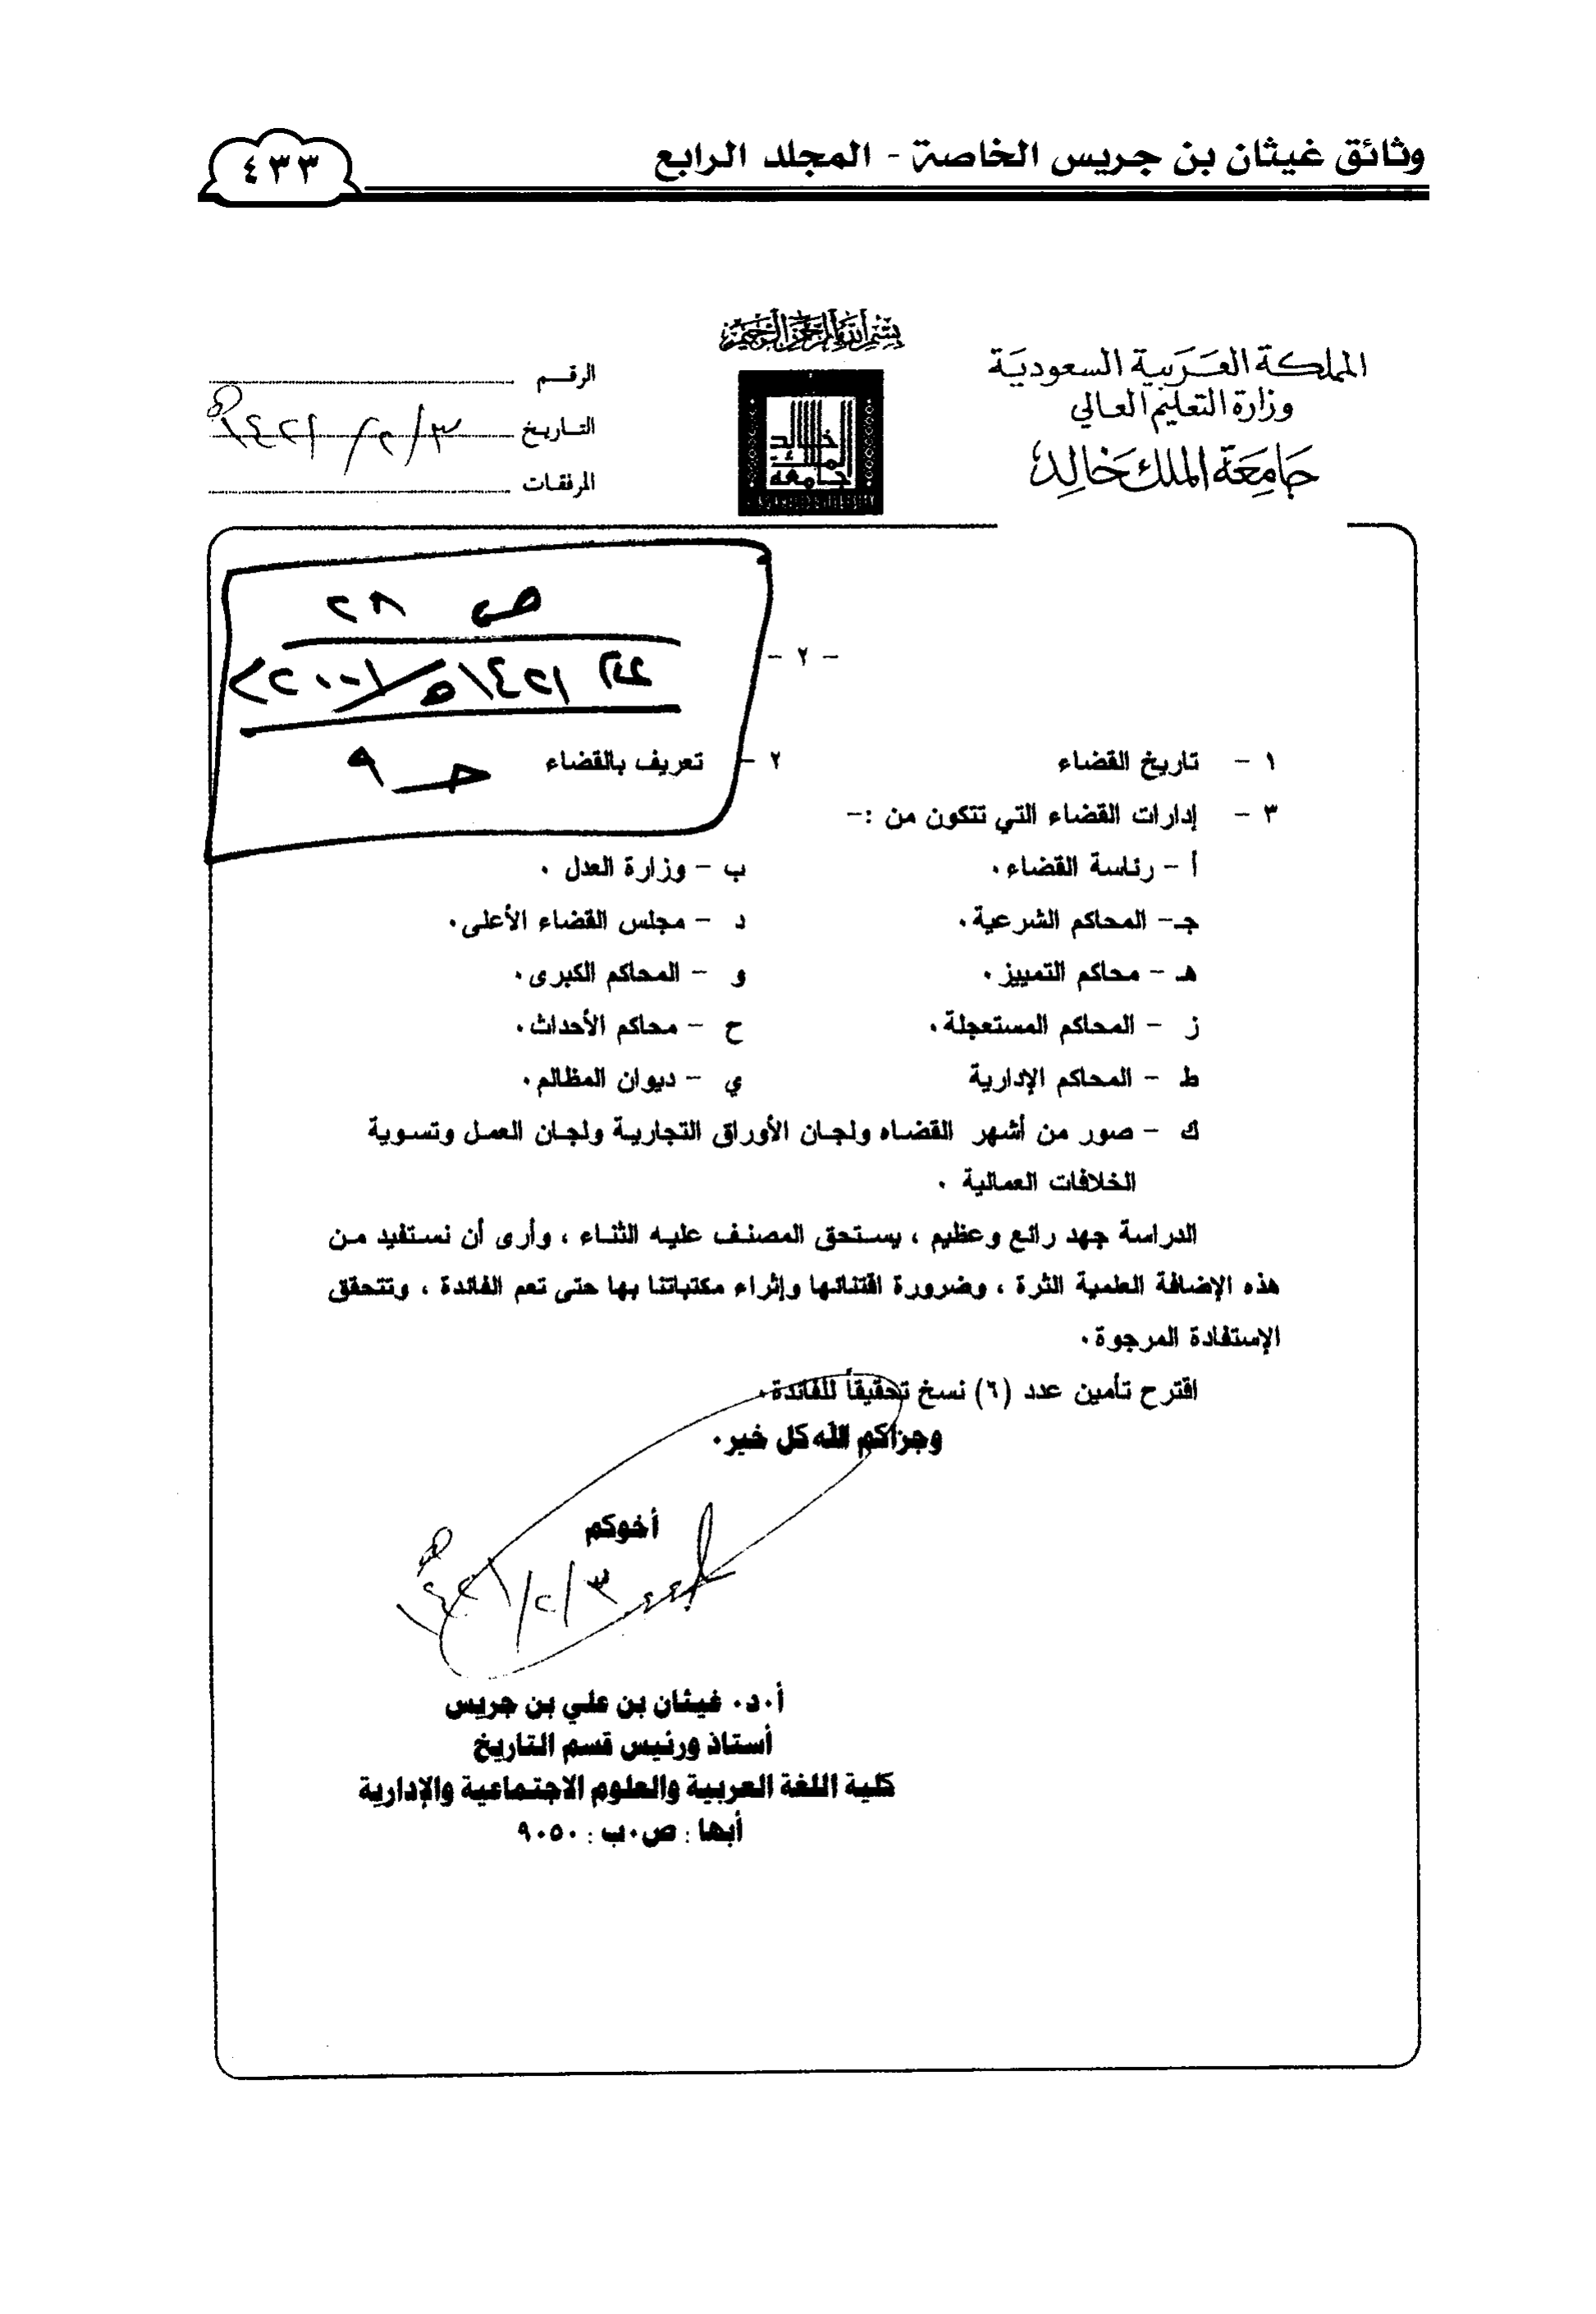 وثائق غيثان بن جريس الخاصة - المجلد الرابع
٤٣٣
بسم الله الرحمن الرحيم
المملكة العربية السعودية
وزارة التعليم العالي
جامعة الملك خالد
جامعة الملك خالد
الرقم
التاريخ ٣/٢/١٤٢١هـ
المرفقات
ص ٢٨
١٤٢١هـ/٢٠٠٠م
حـ ٩
- ٢ -
١ - تاريخ القضاء ٢ - تعريف بالقضاء
٣ - إدارات القضاء التي تتكون من :-
أ - رئاسة القضاء. ب - وزارة العدل .
جـ- المحاكم الشرعية. د - مجلس القضاء الأعلى.
هـ - محاكم التمييز. و - المحاكم الكبرى.
ز - المحاكم المستعجلة. ح - محاكم الأحداث.
ط - المحاكم الإدارية ي - ديوان المظالم.
ك - صور من أشهر القضاه ولجان الأوراق التجارية ولجان العمل وتسوية
الخلافات العمالية .
الدراسة جهد رائع وعظيم ، يستحق المصنف عليه الثناء ، وأرى أن نستفيد من
هذه الإضافة العلمية الثرة ، وضرورة اقتنائها وإثراء مكتباتنا بها حتى تعم الفائدة ، وتتحقق
الإستفادة المرجوة.
اقترح تأمين عدد (٦) نسخ تحقيقاً للفائدة.
وجزاكم الله كل خير.
أخوكم
٣/٢/١٤٢١هـ
أ.د. غيثان بن علي بن جريس
أستاذ ورئيس قسم التاريخ
كلية اللغة العربية والعلوم الاجتماعية والإدارية
أبها : ص.ب : ٩٠٥٠